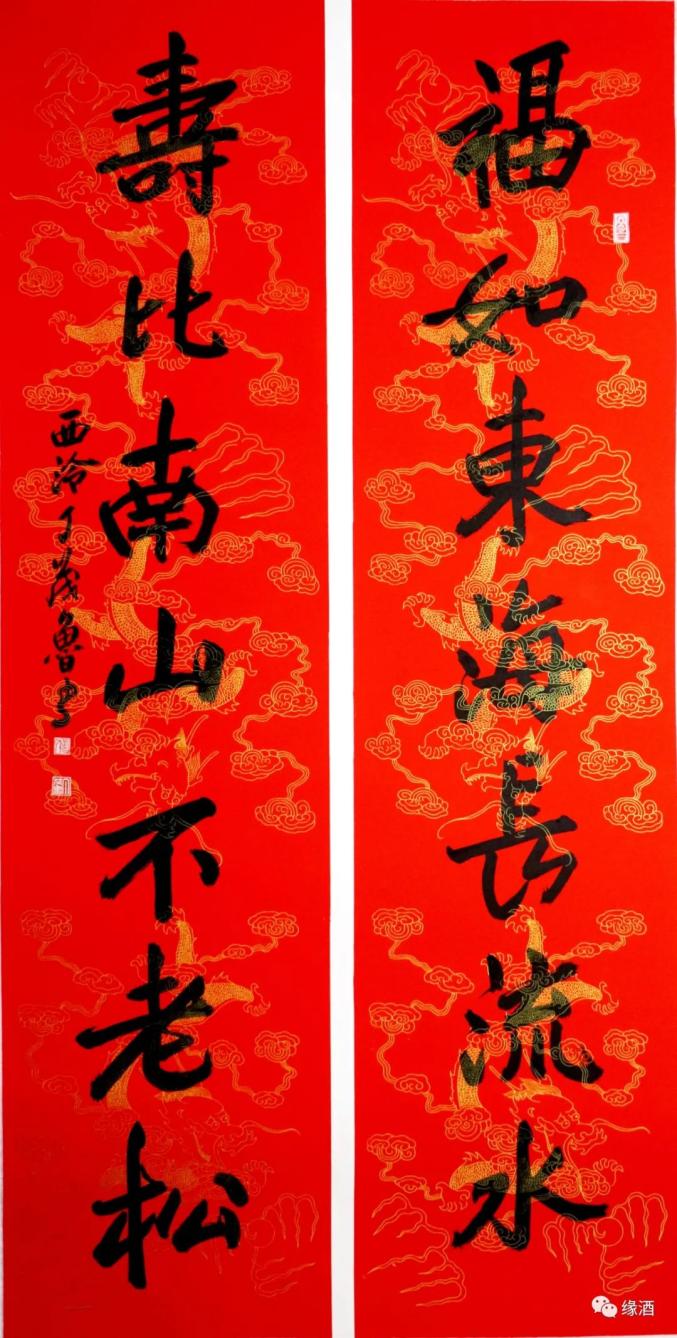 福如東海長流水
壽比南山不老松
西泠丁茂魯書
缘酒